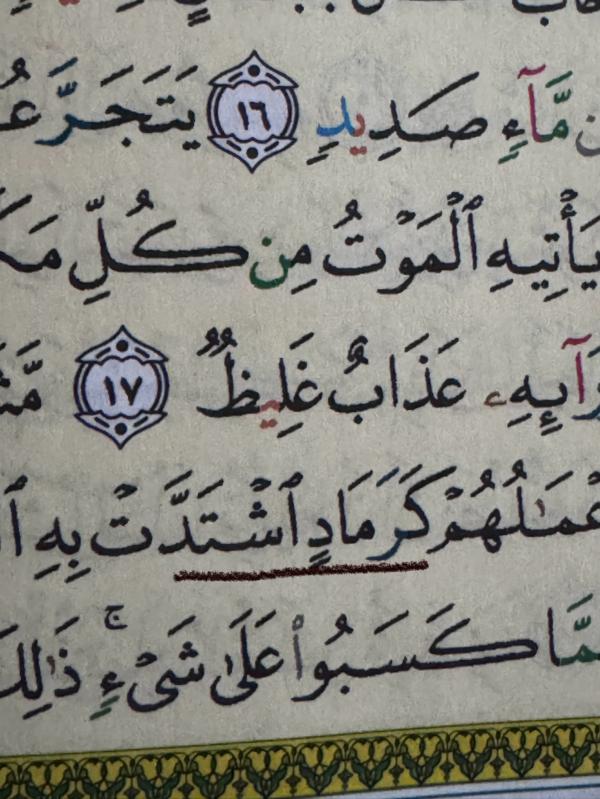 مَّآءٍ صَدِيدٍ ١٦ يَتَجَرَّعُ
يَأْتِيهِ ٱلْمَوْتُ مِن كُلِّ مَكَا
رَآئِهِۦ عَذَابٌ غَلِيظٌ ١٧ مَّثَ
عْمَٰلُهُمْ كَرَمَادٍ ٱشْتَدَّتْ بِهِ ٱ
مَّا كَسَبُوا۟ عَلَىٰ شَىْءٍ ۚ ذَٰلِكَ